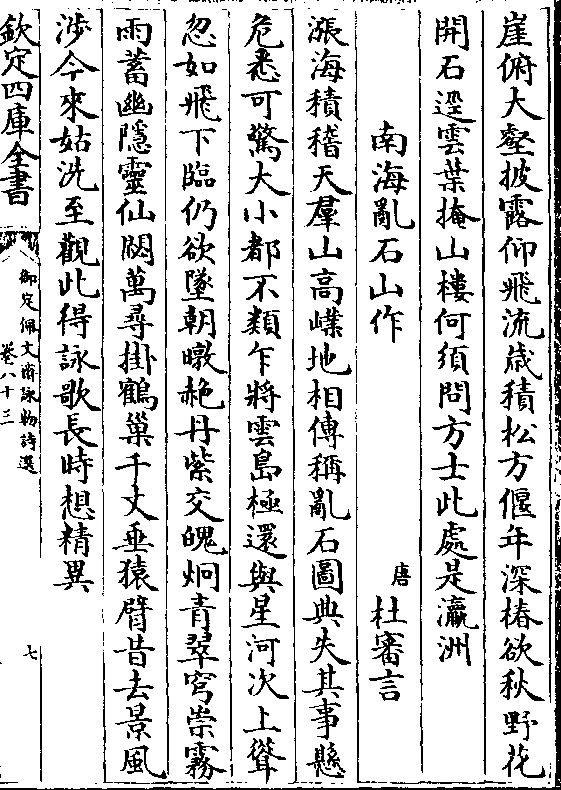 崖俯大壑披露仰飛流歳積松方偃年深椿欲秋野花
開石逕雲葉掩山樓何須問方士此處是瀛洲
南海亂石山作　唐杜審言
漲海積稽天羣山髙嶫地相傳稱亂石圖典失其事懸
危悉可驚大小都不類乍將雲島極還與星河次上聳
忽如飛下臨仍欲墜朝暾赩丹紫夜魄炯青翠穹崇霧
雨蓄幽隱靈仙閟萬尋掛鶴巢千丈垂猿臂昔去景風
渉今來姑洗至觀此得詠歌長時想精異
欽定四庫全書
御定佩文齋詠物詩選
卷八十三
七